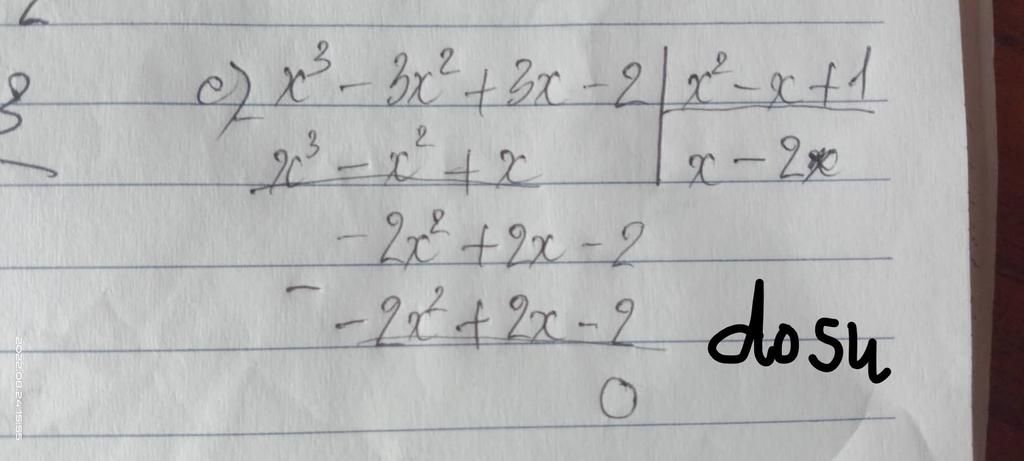 e) x³ - 3x² + 3x - 2 | x² - x + 1
x³ - x² + x | x - 2
- 2x² + 2x - 2
-
- 2x² + 2x - 2
dosu
0
2022.08.24 15:55